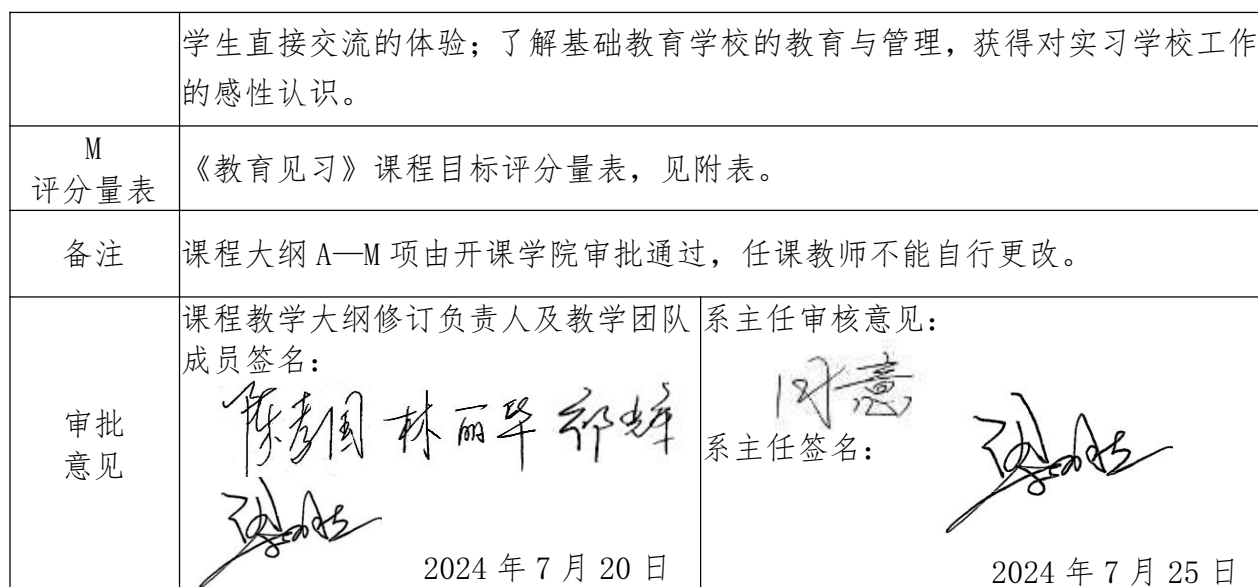 学生直接交流的体验；了解基础教育学校的教育与管理，获得对实习学校工作
的感性认识。
M
评分量表
《教育见习》课程目标评分量表，见附表。
备注
课程大纲 A—M 项由开课学院审批通过，任课教师不能自行更改。
审批
意见
课程教学大纲修订负责人及教学团队
成员签名：
林丽华
2024 年 7 月 20 日
系主任审核意见：
同意
系主任签名：
2024 年 7 月 25 日